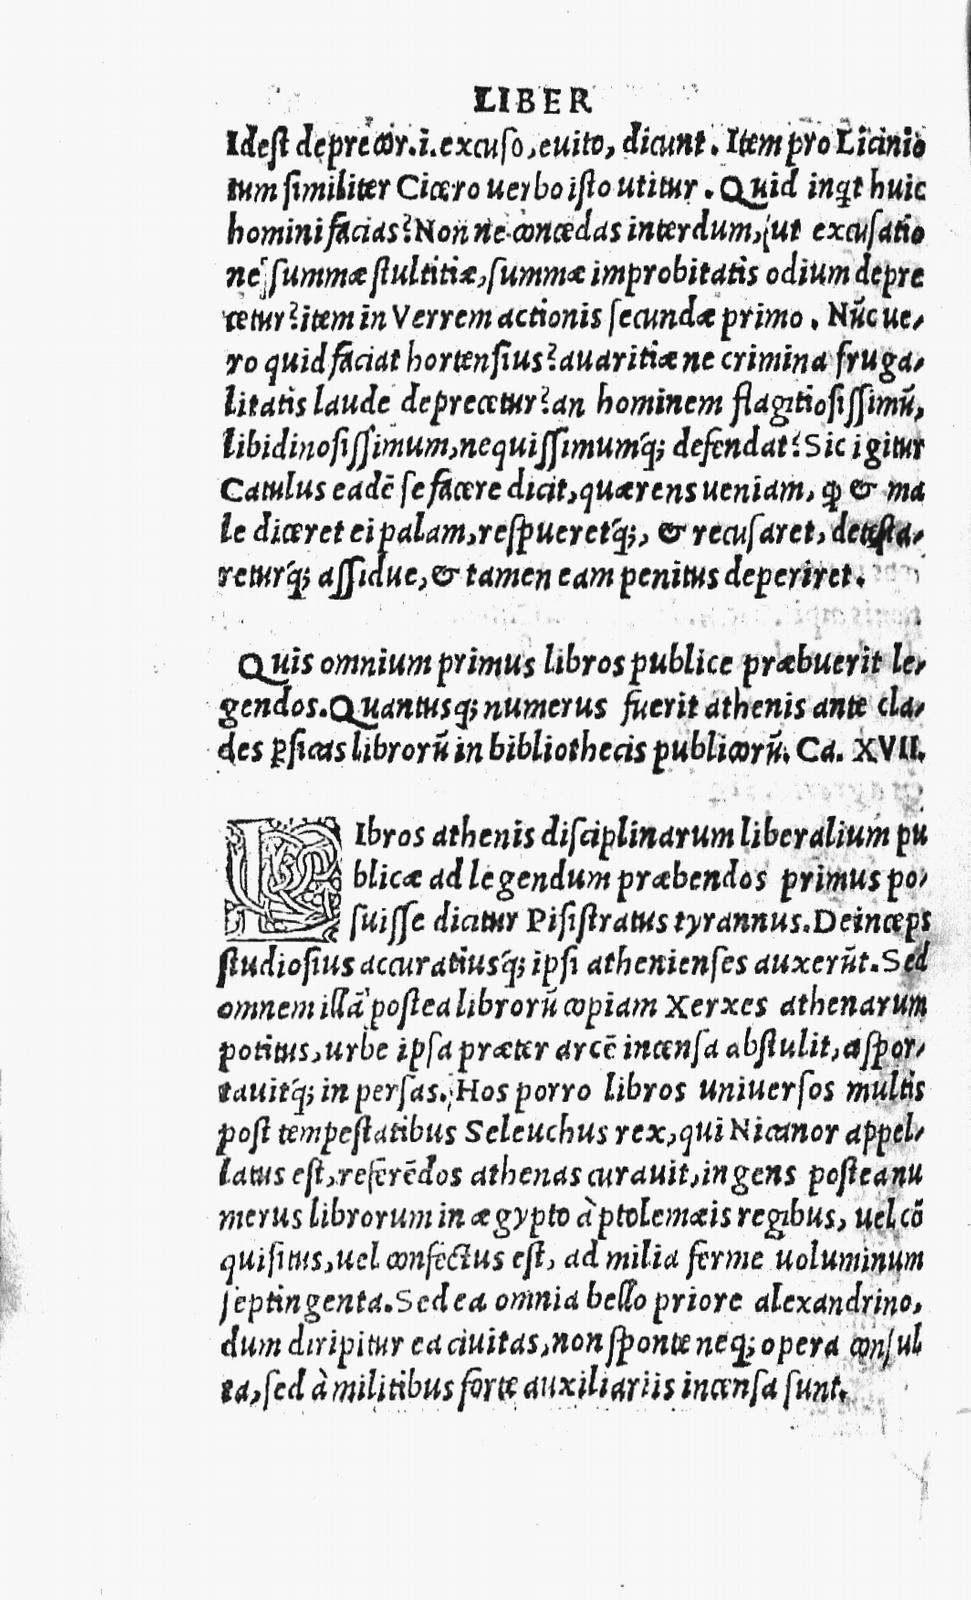 LIBER
Idest deprecor.i.excuso,euito, dicunt. Item pro Licinio
tum similiter Cicero uerbo isto utitur. Quid inq̃t huic
homini facias? Non ne concedas interdum, ut excusatio
ne summæ stultitiæ, summæ improbitatis odium depre
cetur? item in Verrem actionis secundæ primo. Nũc ue-
ro quid faciat hortensius? auaritiæ ne crimina fruga-
litatis laude deprecetur? an hominem flagitiosissimũ,
libidinosissimum, nequissimumq́; defendat? Sic igitur
Catulus eadē se facere dicit, quærens ueniam, ꝙ & ma
le diceret ei palam, respueretq́;, & recusaret, detesta-
returq́; assidue, & tamen eam penitus deperiret.
Quis omnium primus libros publice præbuerit le-
gendos. Quantusq; numerus fuerit athenis ante cla-
des ꝑsicas librorũ in bibliothecis publicorũ. Ca. XVII.
LIbros athenis disciplinarum liberalium pu
blicæ ad legendum præbendos primus po-
suisse dicitur Pisistratus tyrannus. Deinceps
studiosius accuratiusq́; ipsi athenienses auxerũt. Sed
omnem illã postea librorũ copiam Xerxes athenarum
potitus, urbe ipsa præter arcē incensa abstulit, aspor-
tauitq́; in persas. Hos porro libros uniuersos multis
post tempestatibus Seleuchus rex, qui Nicanor appel-
latus est, referēdos athenas curauit, ingens postea nu
merus librorum in ægypto à ptolemæis regibus, uel cõ
quisitus, uel confectus est, ad milia ferme uoluminum
septingenta. Sed ea omnia bello priore alexandrino,
dum diripitur ea ciuitas, non sponte neq; opera consul
ta, sed à militibus forte auxiliariis incensa sunt.